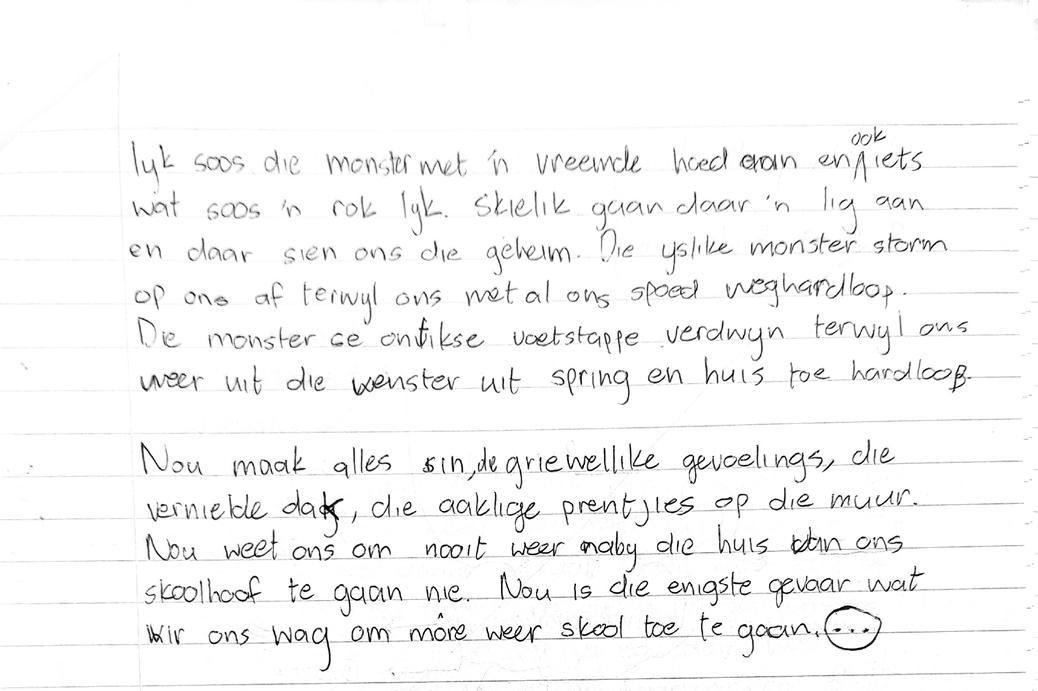 lyk soos die monster met 'n vreemde hoed aan en ook iets
wat soos 'n rok lyk. Skielik gaan daar 'n lig aan
en daar sien ons die geheim. Die yslike monster storm
op ons af terwyl ons met al ons spoed weghardloop.
Die monster se ontikse voetstappe verdwyn terwyl ons
weer uit die venster uit spring en huis toe hardloop.
Nou maak alles sin, de griewellike gevoelings, die
vernielde dak, die aaklige prentjies op die muur.
Nou weet ons om nooit weer naby die huis van ons
skoolhoof te gaan nie. Nou is die enigste gevaar wat
vir ons wag om môre weer skool toe te gaan. ...